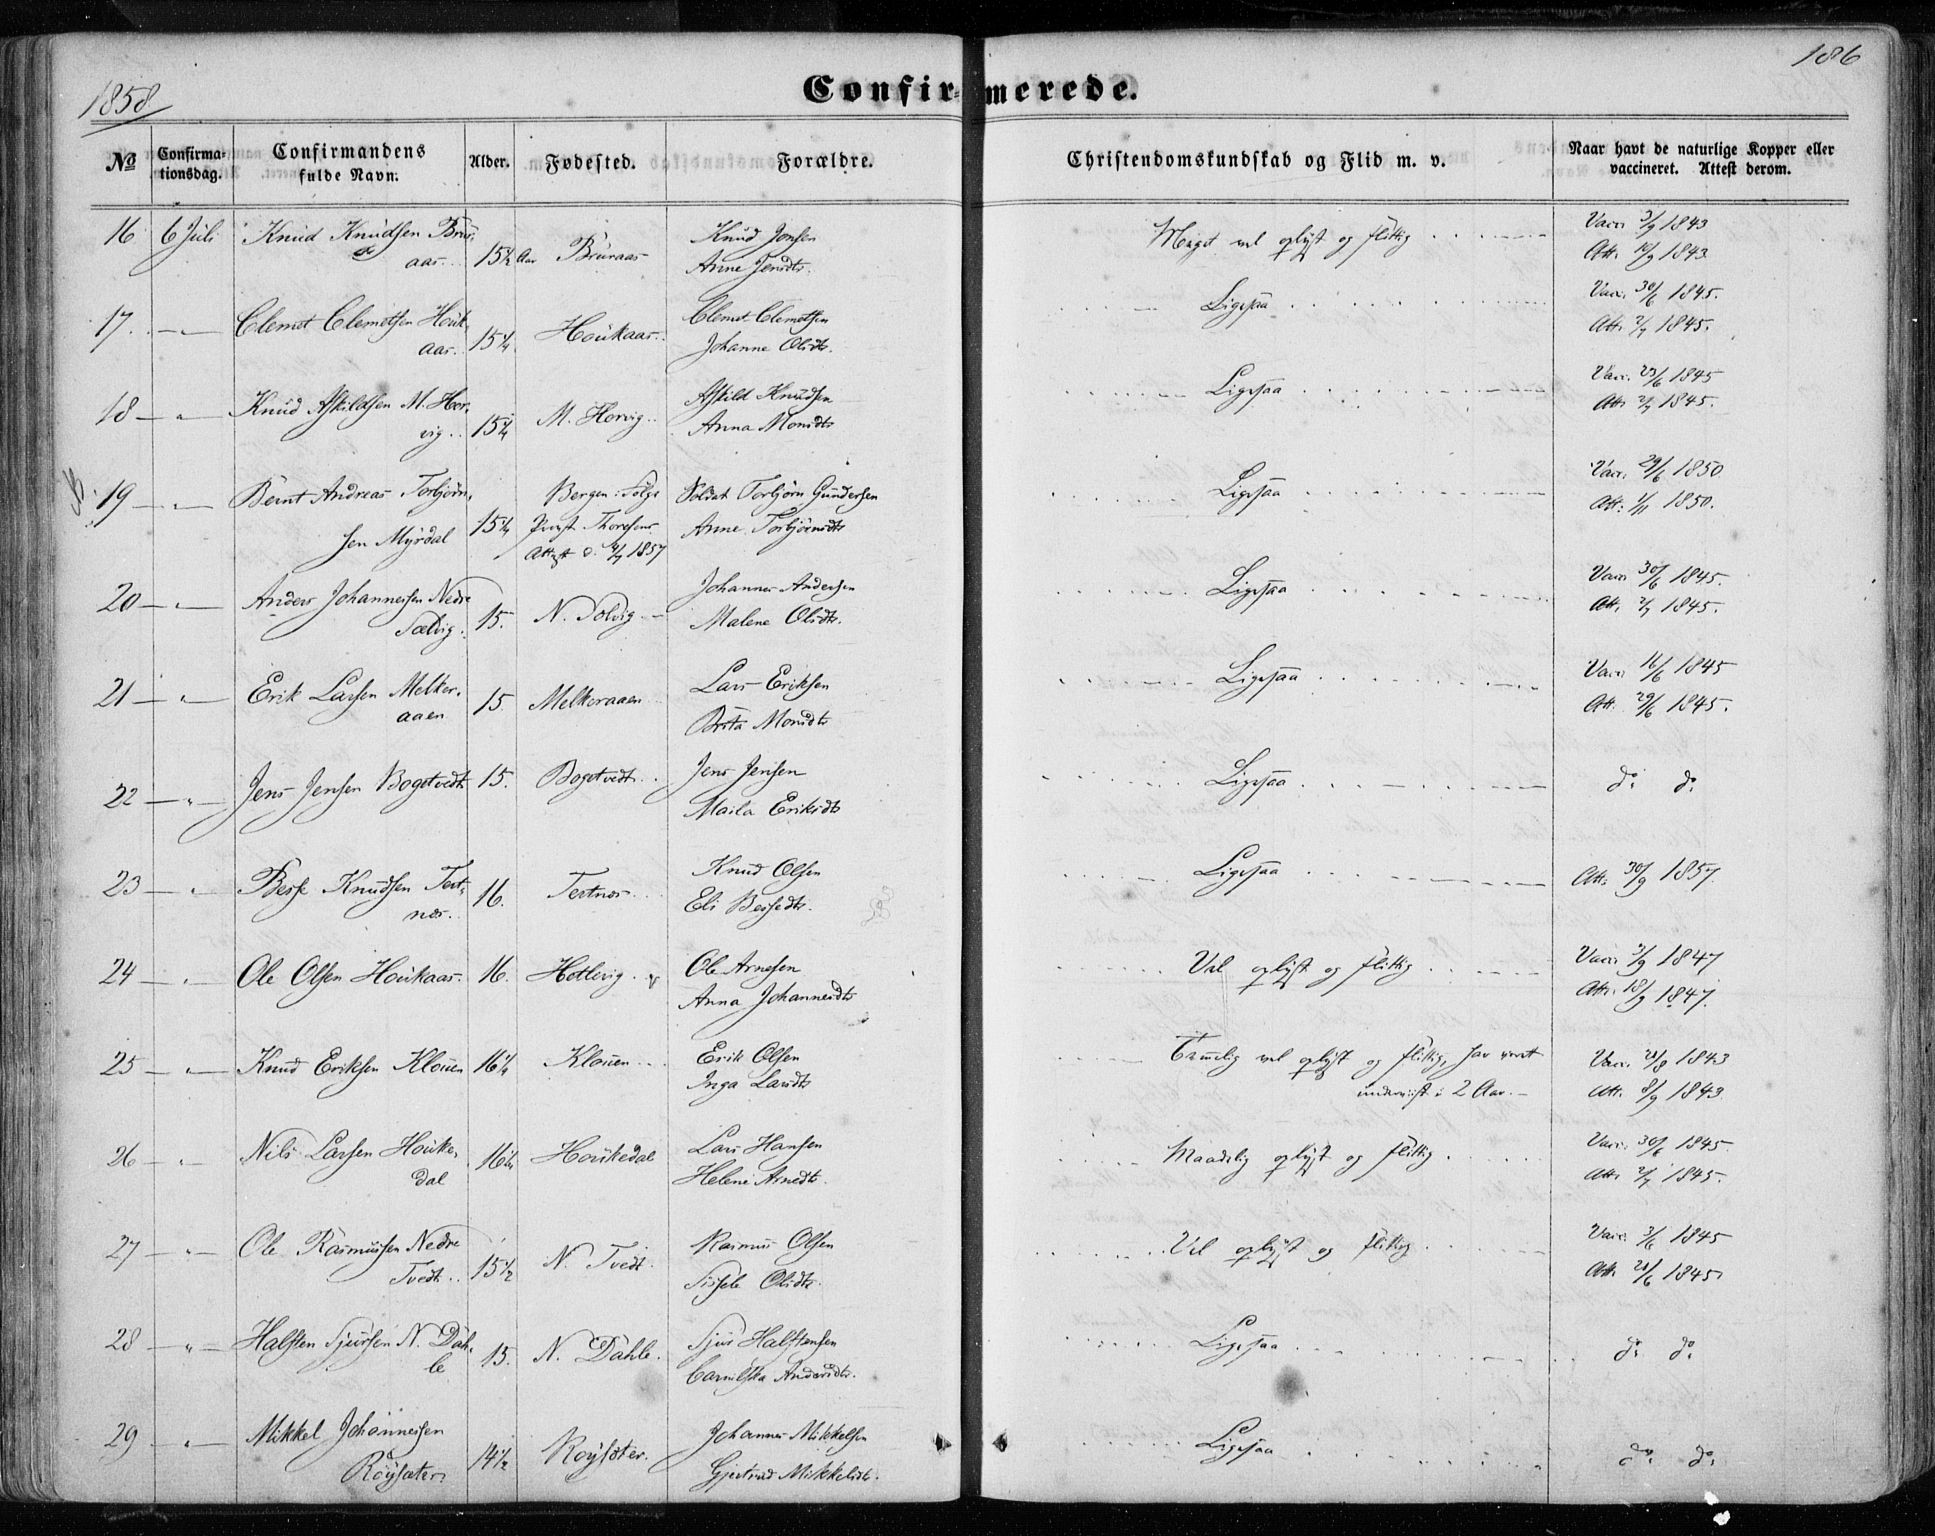 1858
Confirmerede.
186
No
Confirmationsdag.
Confirmandens fulde Navn.
Alder.
Fødested.
Forældre.
Christendomskundskab og Flid m. v.
Naar havt de naturlige Kopper eller vaccineret. Attest derom.
16 6 Juli Knud Knudsen Bruraas 15½ Aar Bruraas Knud Jonsen Meget vel oplyst og flittig Vacc. 3/9 1843
Anne Jensdtr. Att. 19/9 1843
17. — " — Clemet Clemetsen Houkaas 15¼ Houkaas Clemet Clemetsen Ligesaa Vacc. 30/6 1845.
Johanne Olsdtr. Att. 2/7 1845.
18 — " — Knud Askildsen M. Horvig 15¼ M. Horvig Askild Knudsen Ligesaa Vacc. 23/6 1845
Anna Monsdtr Att. 2/7 1845.
19 — " — Bernt Andreas Torbjørnsen Myrdal 15¼ Bergen ifølge Provst Thoresens Attest d. 1857 Soldat Torbjørn Gundersen Ligesaa Vacc. 29/6 1850
Anne Torbjørnsdtr Att. 1/11 1850.
20 — " — Anders Johannessen Nedre Sælvig 15. N. Solvig Johannes Andersen Ligesaa Vacc. 30/6 1845.
Malene Olsdtr. Att. 2/7 1845.
21 — " — Erik Larsen Melkeraaen 15 Melkeraaen Lars Eriksen Ligesaa Vacc. 16/6 1845
Brita Monsdtr Att. 29/6 1845.
22 — " — Jens Jensen Bogetvedt 15. Bogetvedt Jens Jensen Ligesaa do do
Marta Eriksdtr
23 — " — Besse Knudsen Tertnæs 16. Tertnes Knud Olsen Ligesaa Att. 30/9 1857.
Eli Bessedtr.
24 — " — Ole Olsen Houkaas 16. Hetlevig Ole Arnesen Vel oplyst og flittig Vacc. 3/9 1847
Anna Johannesdtr Att. 18/9 1847.
25 — " — Knud Eriksen Klouen 16¼ Klouen Erik Olsen Temelig vel oplyst og flittig, har været Vacc. 21/8 1843
Inga Larsdtr underviist i 2 Aar. Att. 8/9 1843
26 — " — Nils Larsen Houkedal 16¼ Houkedal Lars Hansen Maadelig oplyst og flittig Vacc. 30/6 1845.
Helene Arnedtr. Att. 2/7 1845.
27 — " — Ole Rasmussen Nedre Tvedt 15½ N. Tvedt Rasmus Olsen Vel oplyst og flittig Vacc. 3/6 1845
Sissele Olsdtr. Att. 21/6 1845
28 — " — Halsten Sjursen N. Dahle 15. N. Dahle Sjur Halstensen Ligesaa do do
Andersdtr.
29 — " — Mikkel Johannessen Røysæter 14½ Røysæter Johannes Mikkelsen Ligesaa do do
Gjertrud Mikkelsdtr.